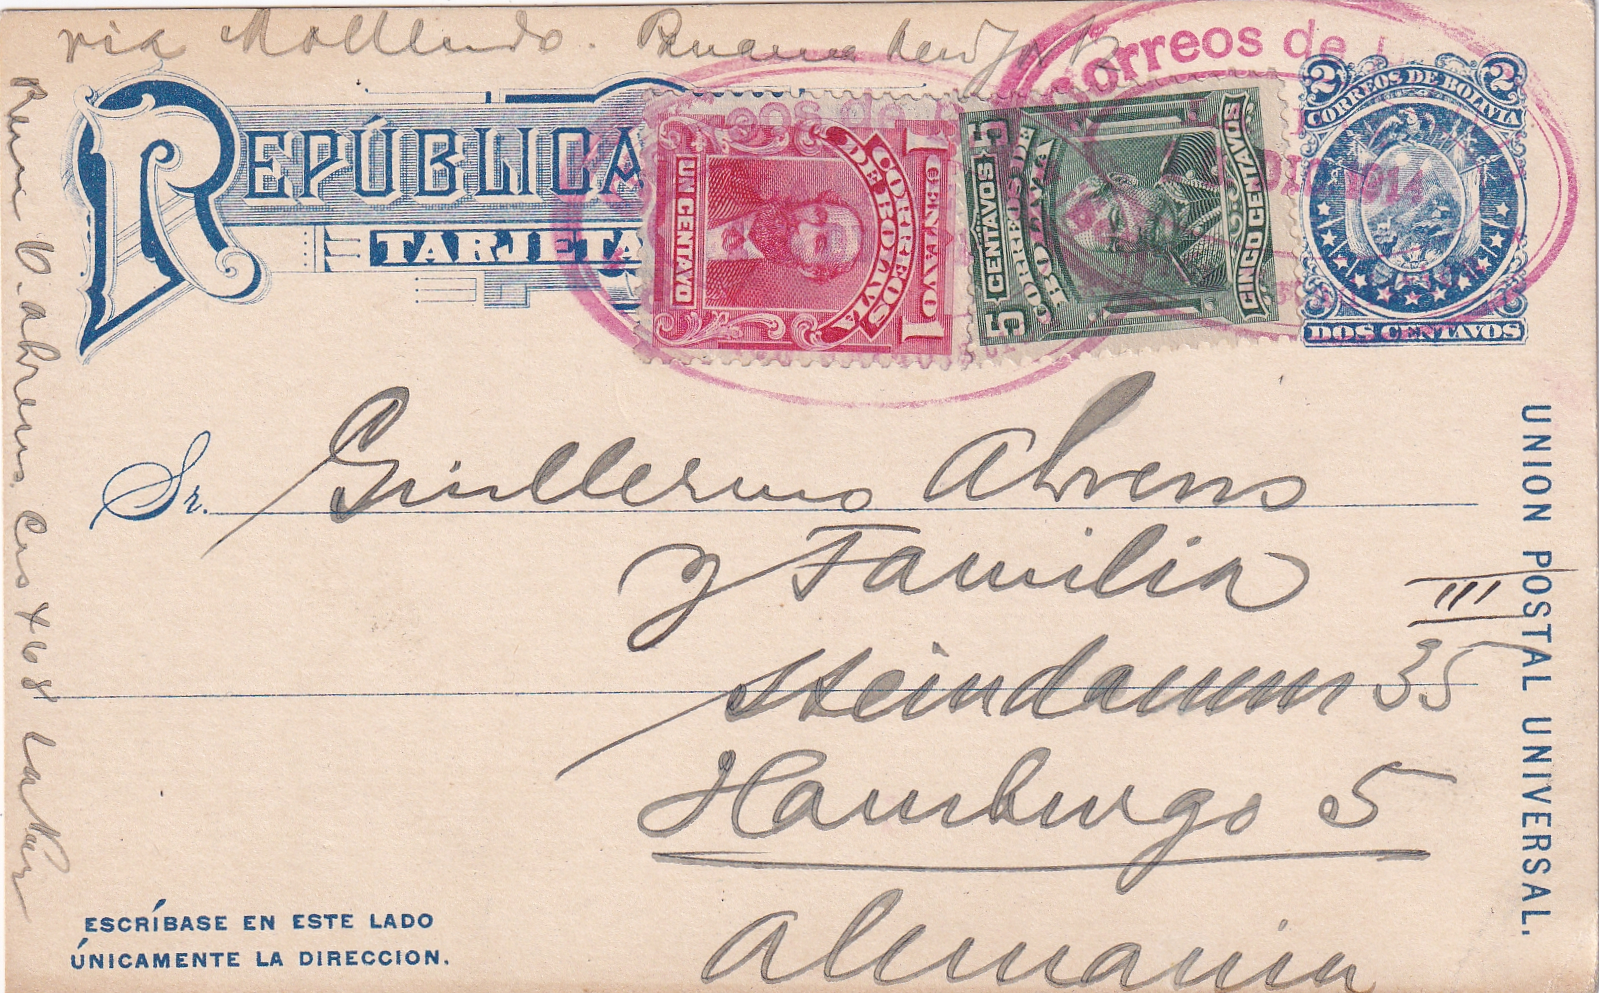 via Mollendo. Panama New York
REPÚBLICA
TARJETA
Correos de
DIC 1914
UN CENTAVO
CORREOS DE BOLIVIA
1 CENTAVO 1
5 CENTAVOS 5
CORREOS DE BOLIVIA
CINCO CENTAVOS
2 2
CORREOS DE BOLIVIA
DOS CENTAVOS
Sr. Guillermo Ahrens
y Familia
III
Steindamm 35
Hamburgo 5
Alemania
UNION POSTAL UNIVERSAL.
Ahrens, Cas 468 La Paz
ESCRÍBASE EN ESTE LADO
ÚNICAMENTE LA DIRECCION.